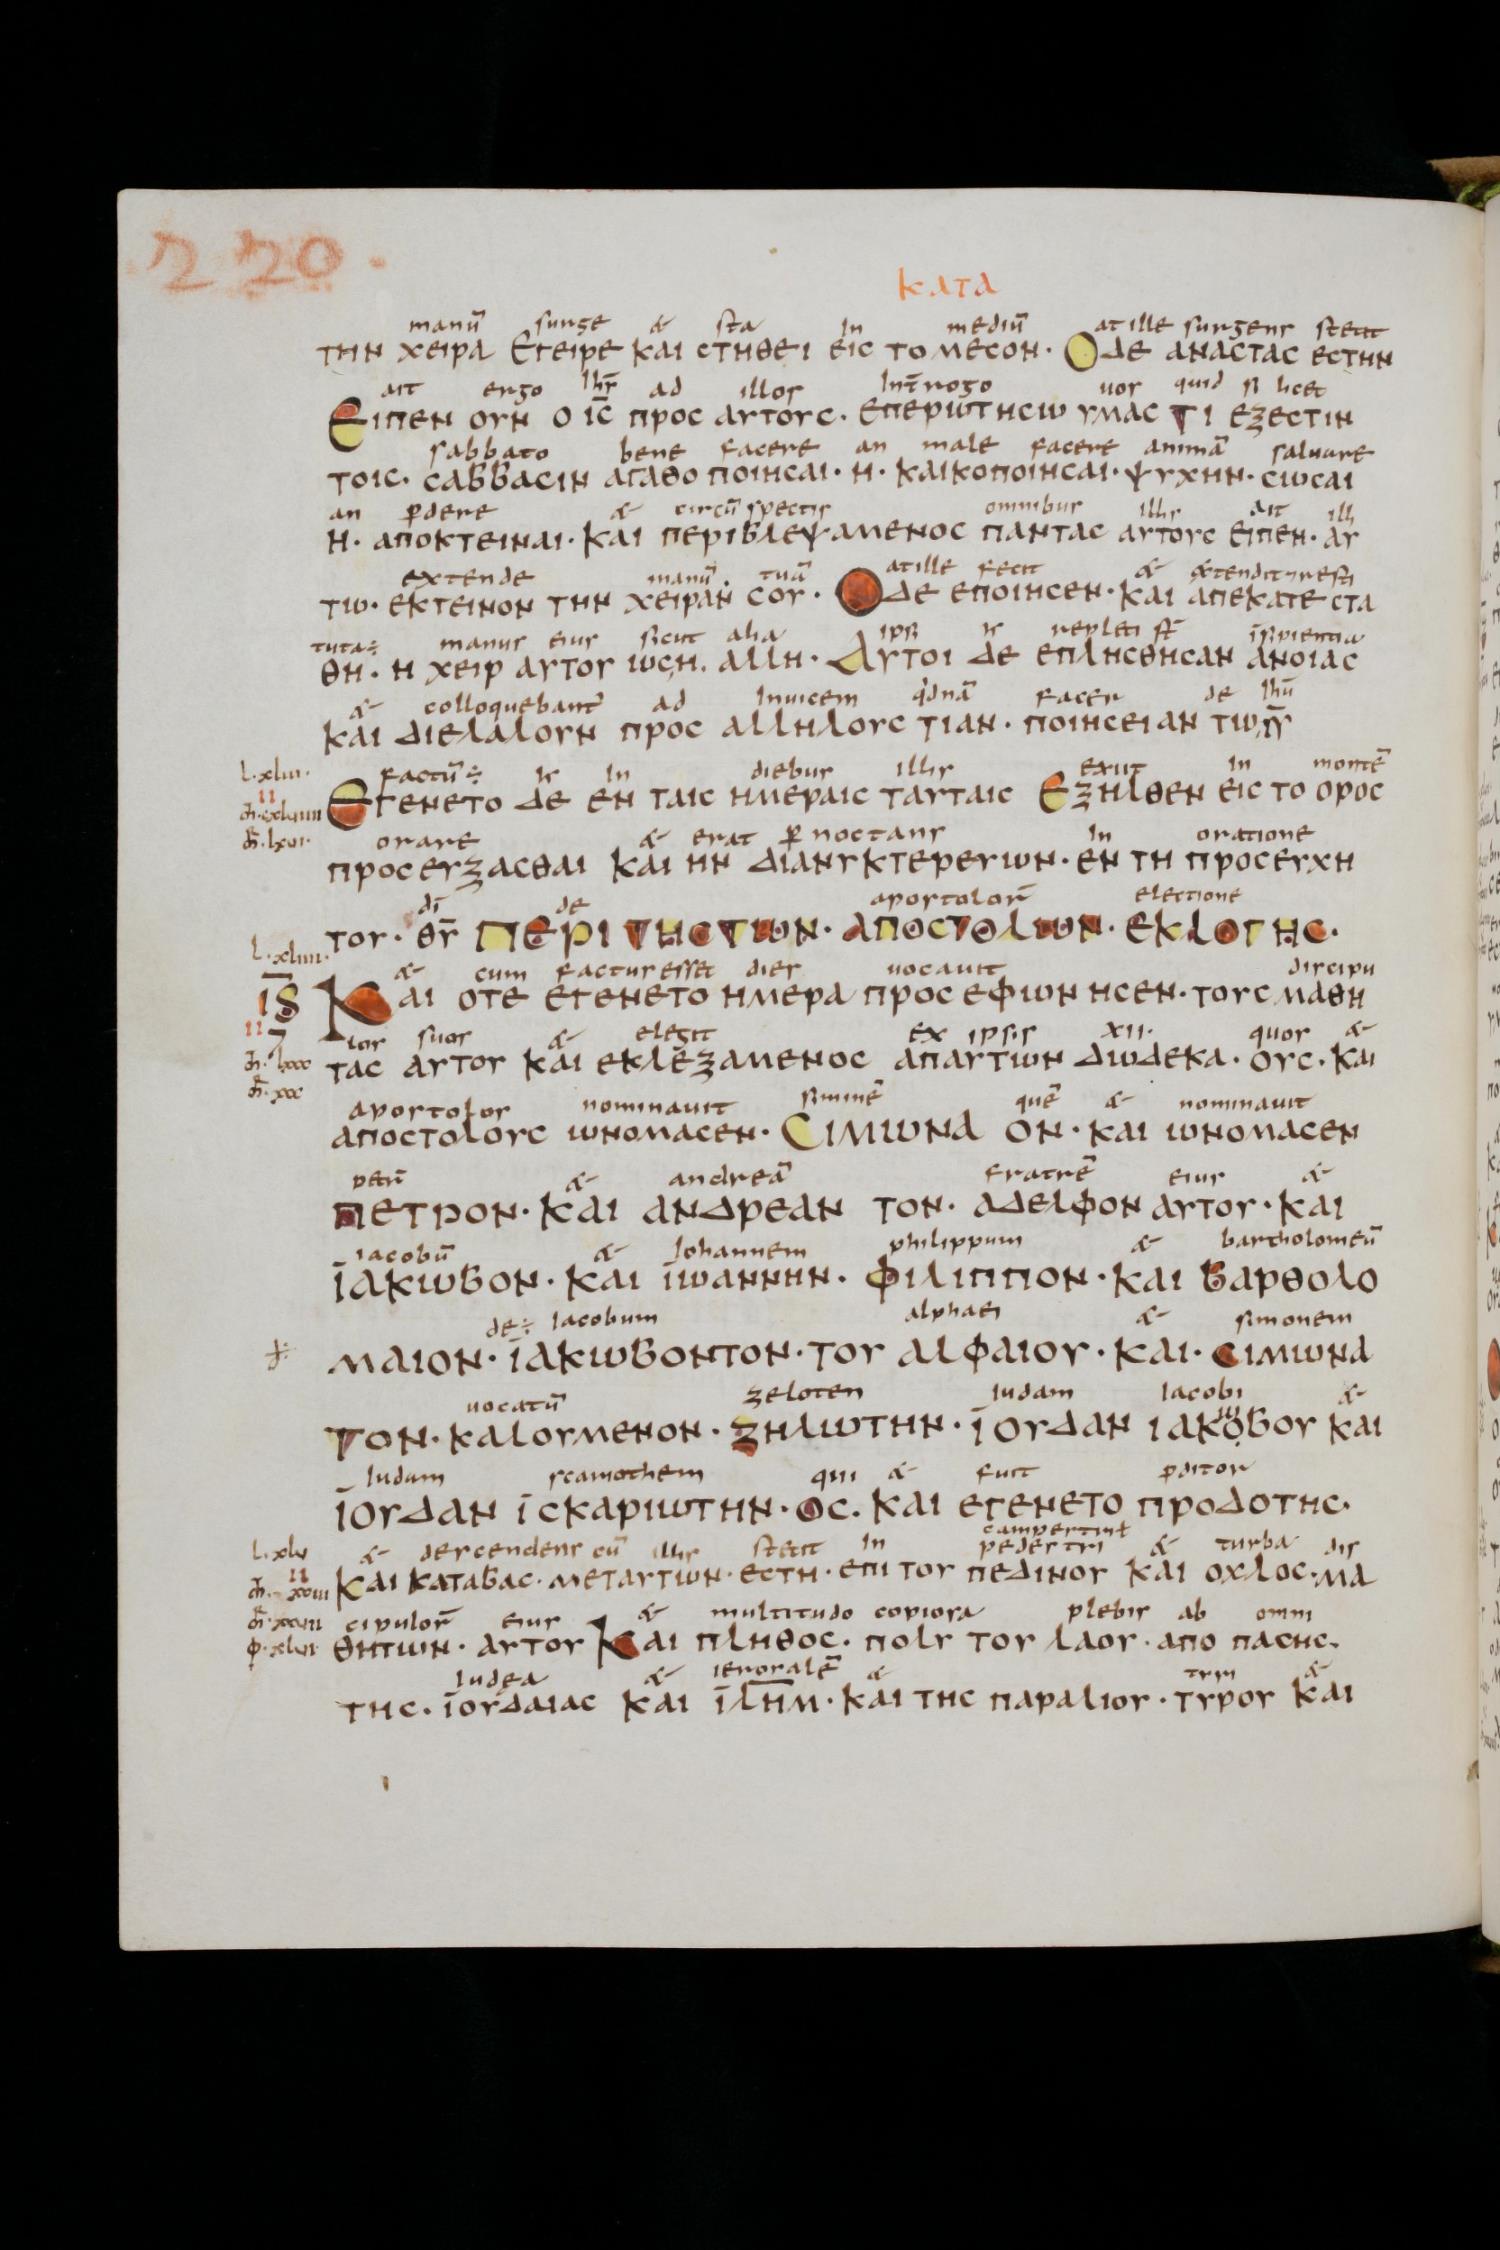 220.
ΚΑΤΑ
manū surge & sta In mediū at ille surgens stetit
ΤΗΝ ΧΕΙΡΑ ΕΓΕΙΡΕ ΚΑΙ CΤΗΘΕΙ ΕΙC ΤΟ ΜΕCΟΝ· ΟΔΕ ΑΝΑCΤΑC ΕCΤΗΝ
ait ergo Ihs̄ ad illos Int̄rogo uos quid si licet
ΕΙΠΕΝ ΟΥΝ Ο ΙC̄ ΠΡΟC ΑΥΤΟΥC· ΕΠΕΡΩΤΗCΩ ΥΜΑC ΤΙ ΕΞΕCΤΙΝ
sabbato bene facere an male facere animā saluare
ΤΟΙC· CΑΒΒΑCΙΝ ΑΓΑΘΟ ΠΟΙΗCΑΙ· Η· ΚΑΙΚΟΠΟΙΗCΑΙ· ΨΥΧΗΝ· CΩCΑΙ
an p̄dere & circū spectis omnibus illis ait illi
Η· ΑΠΟΚΤΕΙΝΑΙ· ΚΑΙ ΠΕΡΙΒΛΕΨΑΜΕΝΟC ΠΑΝΤΑC ΑΥΤΟΥC ΕΙΠΕΝ· ΑΥ
extende manū tuā at ille fecit &
ΤΩ· ΕΚΤΕΙΝΟΝ ΤΗΝ ΧΕΙΡΑΝ CΟΥ· ΟΔΕ ΕΠΟΙΗCΕΝ· ΚΑΙ ΑΠΕΚΑΤΕCΤΑ
tuta÷ manus eius sicut alia ipsi is repleti st̄ īsipientia
ΘΗ· Η ΧΕΙΡ ΑΥΤΟΥ ΩCΗ· ΑΛΛΗ· ΑΥΤΟΙ ΔΕ ΕΠΛΗCΘΗCΑΝ ΑΝΟΙΑC
& colloquebant' ad Inuicem q'dnā facer de Ihū
ΚΑΙ ΔΙΕΛΑΛΟΥΝ ΠΡΟC ΑΛΛΗΛΟΥC ΤΙΑΝ· ΠΟΙΗCΕΙΑΝ ΤΩ ΙῩ
l·xliii· factū÷ Is In diebus illis exiit In montē
ΕΓΕΝΕΤΟ ΔΕ ΕΝ ΤΑΙC ΗΜΕΡΑΙC ΤΑΥΤΑΙC ΕΞΗΛΘΕΝ ΕΙC ΤΟ ΟΡΟC
orare & erat p̄ noctans In oratione
ΠΡΟCΕΥΞΑCΘΑΙ ΚΑΙ ΗΝ ΔΙΑΝΥΚΤΕΡΕΥΩΝ· ΕΝ ΤΗ ΠΡΟCΕΥΧΗ
dī de apostolor̄ electione
ΤΟΥ· ΘῩ ΠΕΡΙ ΤΗCΤΩΝ· ΑΠΟCΤΟΛΩΝ· ΕΚΛΟΓΗC·
l·xliiii· & cum factus esset dies uocauit discipu
ΙS̄ ΚΑΙ ΟΤΕ ΕΓΕΝΕΤΟ ΗΜΕΡΑ ΠΡΟCΕΦΩΝΗCΕΝ· ΤΟΥC ΜΑΘΗ
los suos & elegit ex ipsis XII· quos &
ΤΑC ΑΥΤΟΥ ΚΑΙ ΕΚΛΕΞΑΜΕΝΟC ΑΠΑΥΤΩΝ ΔΩΔΕΚΑ· ΟΥC· ΚΑΙ
apostolos nominauit simonē quē & nominauit
ΑΠΟCΤΟΛΟΥC ΩΝΟΜΑCΕΝ· CΙΜΩΝΑ ΟΝ· ΚΑΙ ΩΝΟΜΑCΕΝ
petrū & andreā fratrē eius &
ΠΕΤΡΟΝ· ΚΑΙ ΑΝΔΡΕΑΝ ΤΟΝ· ΑΔΕΛΦΟΝ ΑΥΤΟΥ· ΚΑΙ
iacobū & Iohannem philippum & bartholomeū
ΙΑΚΩΒΟΝ· ΚΑΙ ΙΩΑΝΝΗΝ· ΦΙΛΙΠΠΟΝ· ΚΑΙ ΒΑΡΘΟΛΟ
de÷ Iacobum alphaei & simonem
ΜΑΙΟΝ· ΙΑΚΩΒΟΝΤΟΝ· ΤΟΥ ΑΛΦΑΙΟΥ· ΚΑΙ· CΙΜΩΝΑ
uocatū zeloten Iudam Iacobi &
ΤΟΝ· ΚΑΛΟΥΜΕΝΟΝ· ΖΗΛΩΤΗΝ· ΙΟΥΔΑΝ ΙΑΚΟΒΟΥ ΚΑΙ
Iudam scariothem qui & fuit p̄ditor
ΙΟΥΔΑΝ ΙCΚΑΡΙΩΤΗΝ· ΟC· ΚΑΙ ΕΓΕΝΕΤΟ ΠΡΟΔΟΤΗC·
l·xlv & descendens cū illis stetit In campestri ł pedestri & turba dis
ΚΑΙ ΚΑΤΑΒΑC· ΜΕΤΑΥΤΩΝ· ΕCΤΗ· ΕΠΙ ΤΟΥ ΠΕΔΙΝΟΥ ΚΑΙ ΟΧΛΟC· ΜΑ
cipulor̄ eius & multitudo copiosa plebis ab omni
ΘΗΤΩΝ· ΑΥΤΟΥ ΚΑΙ ΠΛΗΘΟC· ΠΟΛΥ ΤΟΥ ΛΑΟΥ· ΑΠΟ ΠΑCΗC·
Iudea & ierosalē & tyri &
ΤΗC· ΙΟΥΔΑΙΑC ΚΑΙ ΙΛΗ̄Μ· ΚΑΙ ΤΗC ΠΑΡΑΛΙΟΥ· ΤΥΡΟΥ ΚΑΙ